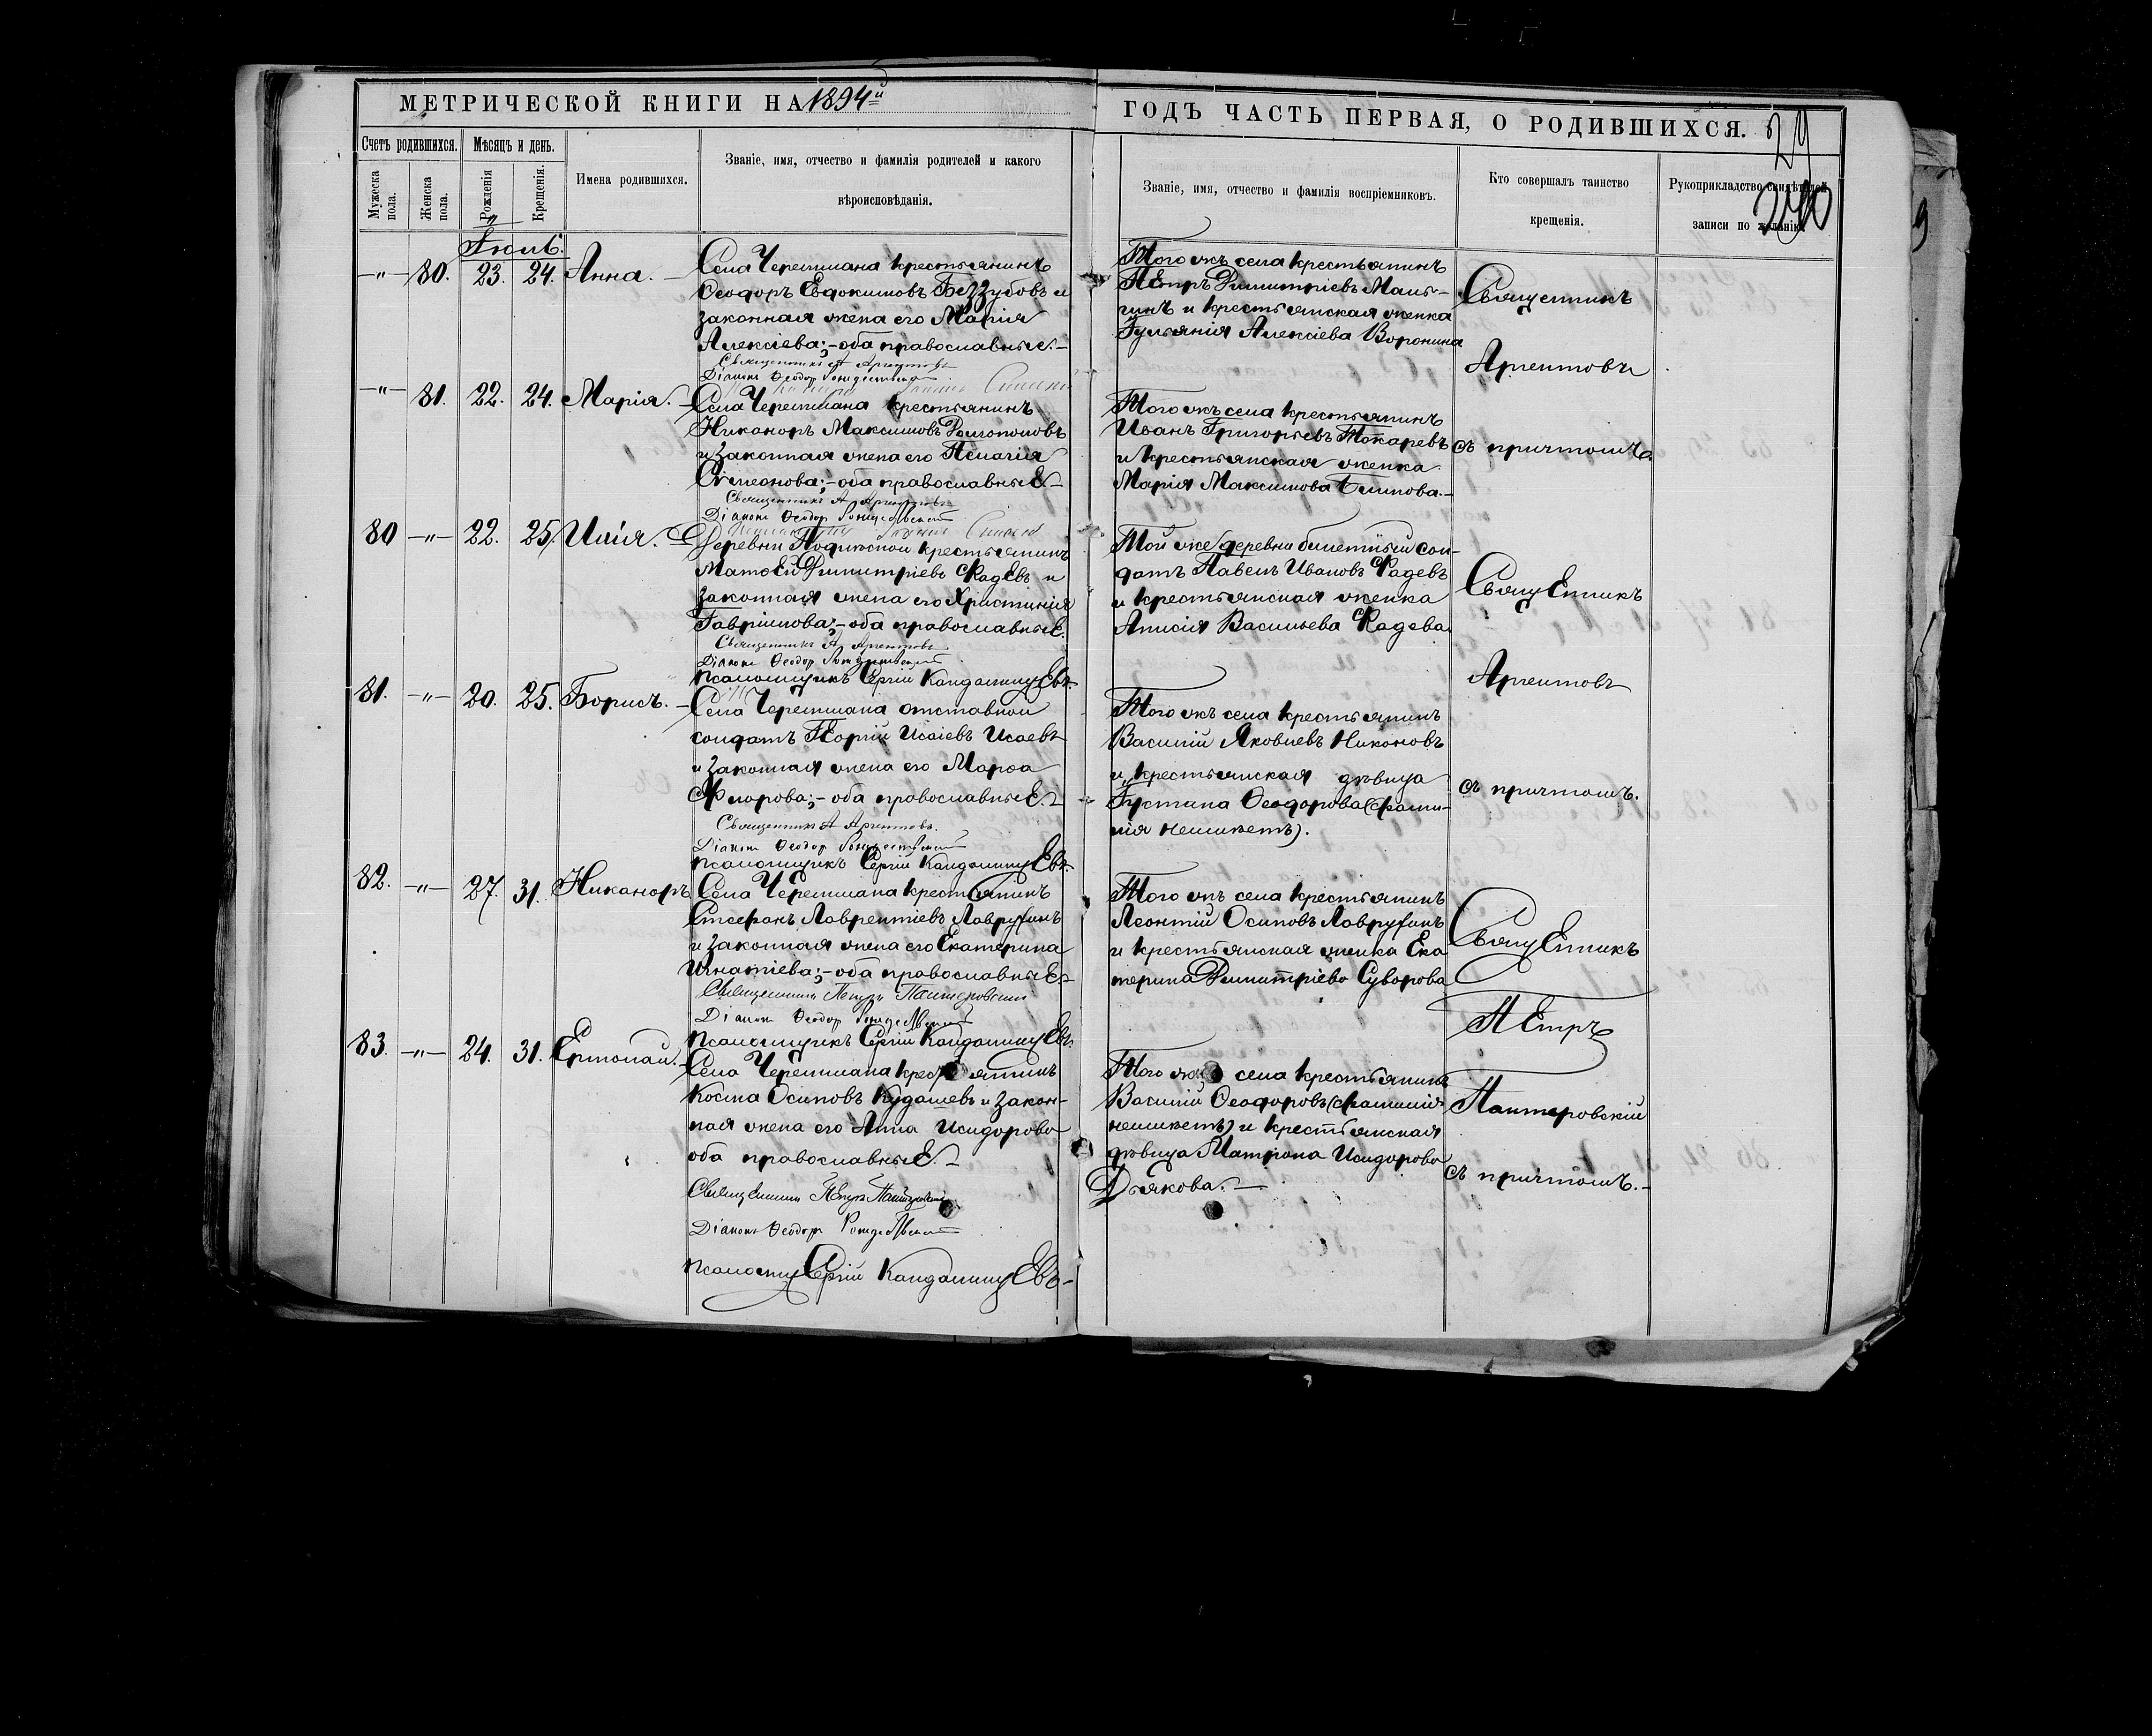 МЕТРИЧЕСКОЙ КНИГИ НА 1894й
ГОДЪ ЧАСТЬ ПЕРВАЯ, О РОДИВШИХСЯ.
29
Счетъ родившихся.
Мѣсяцъ и день.
Имена родившихся.
Званіе, имя, отчество и фамилія родителей и какого
вѣроисповѣданія.
Мужеска пола.
Женска пола.
Рожденія
Крещенія.
Званіе, имя, отчество и фамилія воспріемниковъ.
Кто совершалъ таинство
крещенія.
Рукоприкладство свидѣтелей
записи по желанію
Іюль.
-"- 80. 23. 24. Анна.
Села Черемшана крестьянинъ
Ѳеодоръ Евдокимовъ Беззубовъ и
законная жена его Марія
Алексіева; - оба православные. -
Священникъ А Аргентовъ
Діаконъ Ѳеодор Рождественскій
Того жъ села крестьянинъ
Петръ Димитріевъ
и крестьянская женка
Іульянія Алексіева Воронина
Священникъ
Аргентовъ
съ причтомъ.
-"- 81. 22. 24. Марія.
Села Черемшана крестьянинъ
Никаноръ Максимовъ
и законная жена его Пелагія
Симеонова; - оба православные -
Священникъ А Аргентовъ
Діаконъ Ѳеодор Рождественскій
Того жъ села крестьянинъ
Иванъ Григорьевъ Токаревъ
и крестьянская женка
Марія Максимова Блинова. -
80 -"- 22. 25. Илія.
Деревни крестьянинъ
Матѳей Димитріевъ Фадевъ и
законная жена его Христинія
Гавріилова; - оба православные.
Священникъ А Аргентовъ
Діаконъ Ѳеодор Рождественскій
псаломщикъ Сергій
Той же деревни билетный сол-
датъ Павелъ Ивановъ Фадевъ
и крестьянская женка
Анисія Васильева Фадева.
Священникъ
Аргентовъ
съ причтомъ.
81. -"- 20. 25. Борисъ. -
Села Черемшана отставной
солдатъ Георгій Исаіевъ Исаевъ
и законная жена его Марѳа
Флорова; - оба православные. -
Священникъ А Аргентовъ.
Діаконъ Ѳеодор Рождественскій
псаломщикъ Сергій
Того жъ села крестьянинъ
Василій Яковлевъ Никоновъ
и крестьянская дѣвица
Ѳеодорова (фами-
лія неимѣетъ).
82. -"- 27. 31. Никаноръ
Села Черемшана крестьянинъ
Стефанъ Лаврентіевъ Лаврухинъ
и законная жена его Екатерина
Игнатіева; - оба православные. -
Священникъ Петръ Пантеровскій
Діаконъ Ѳеодор Рождественскій
псаломщикъ Сергій
Того жъ села крестьянинъ
Леонтій Осиповъ Лаврухинъ
и крестьянская женка Ека
терина Димитріева Суворова
Священникъ
Петръ
Пантеровскій
съ причтомъ. -
83. -"- 24. 31. Ермолай. -
Села Черемшана крестьянинъ
Косма Осиповъ Кудашевъ и закон-
ная жена его Анна Исидорова
оба православные. -
Священникъ Петръ Пантеровскій
Діаконъ Ѳеодор Рождественскій
псаломщ Сергій
Того же села крестьянинъ
Василій Ѳеодоровъ (фамилія
неимѣетъ) и крестьянская
дѣвица Матрона Исидорова
Дьякова. -